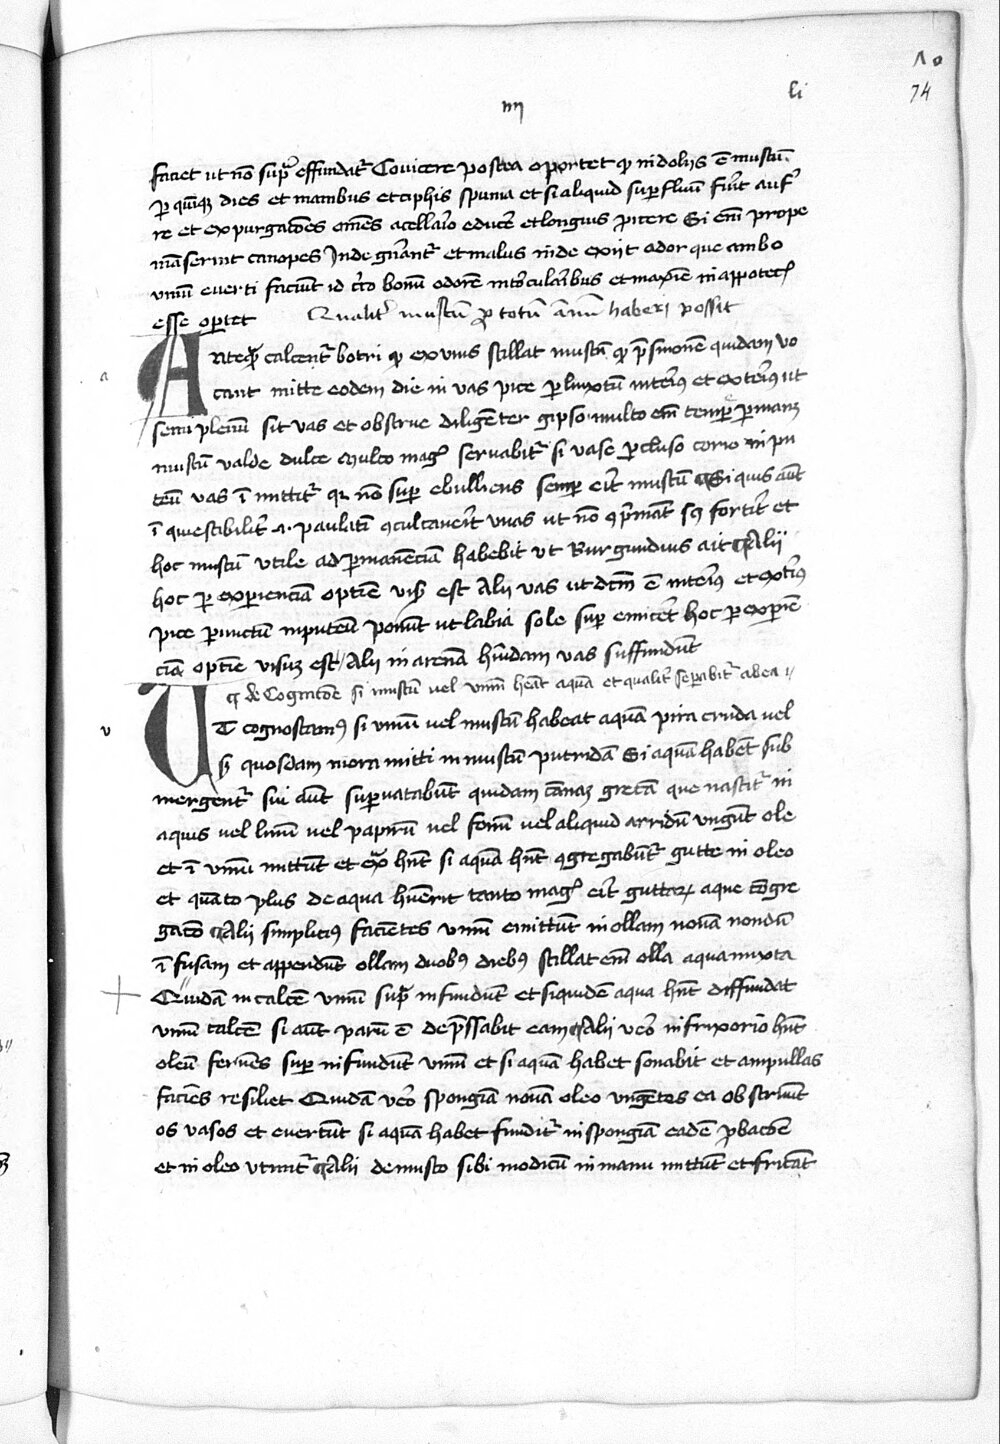 10
li 74
iiij
faciet ut nõ supͣ effundatͬ Conicere postea oportet qͥ in doliis ẽ mustũ.
ꝑ quĩqꝫ dies et manibus et ciphis spuma et si aliquid suꝑfluũ fuít aufͬ
re et expurgatões om̃es a cellario educe͛ et longius ꝓicere Si em̃ prope
mãserint canopes Inde gñantͬ et malus inde exiit odor que ambo
vinũ euerti faciũt id cͥto bonũ odorẽ in tͦcularibus et maxĩe in appotecͥ
esse oꝑtet Qualitͬ mustũ ꝓ totũ ãnũ haberi possit
Anteqͣ calcentͬ botri qͥ ex uuis stillat mustũ qͥ p̃smonẽ quidam vo
cant mitte eodem die in vas pice ꝑlinxtũ interiꝰ et exteriꝰ ut
semiplenũ sit vas et obstrue diligẽter gipso multo em̃ tempͤ ꝑmanꝫ
mustũ valde dulce multo magͥ seruabitͬ si vase ꝑcluso corio in pu
teũ vas ĩmittitͬ qꝛ nõ suꝑ ebulliens semꝑ eít mustũ Si quis aũt
ĩquiescibilít a. paulatĩ ꝯculcaueít vuas ut nõ ꝯp̃mãt sꝫ fortít et
hoc mustũ vtile ad ꝑmanẽciã habebit vt Burgundius ait Alii
hoc ꝑ experienciã optĩe visͫ est Alii vas ut dcm̃ ẽ interiꝰ et extͥus
pice ꝑunctũ in puteũ ponũt ut labia sole suꝑ emiceńt hoc ꝑ exꝑiẽ
ciã optĩe visuꝫ est Alii in arenã hũidam vas suffundũt
q̃ de Cognitõe si mustũ vel vinũ heãt aquã et qualitͬ seꝑabitͬ ab ea
Vt cognoscamꝰ si vinũ vel mustũ habeat aquã pira cruda vel
sͫ quosdam mora mitti in mustũ putridã Si aquã habẽt sub
mergentͬ sui aũt suꝑnatabũt quidam cãnaꝫ grecã que nascitͬ in
aquis vel linũ vel papirũ vel fenũ vel aliquid arridũ vngũt ole
et ĩ vinũ mittũt et ext̃hũt si aquã hñt ꝯgregabũtͬ gutte in oleo
et quãto plus de aqua huẽrit tanto magͥ eít guttaꝝ aque cõgre
gatõ Alii simpliciꝰ faciẽtes vinũ emittũt in ollam nouã nondũ
ĩfusam et appendũt ollam duobꝰ diebꝰ stillat em̃ olla aqua mixta
Quidã in calcẽ vinũ supͣ infundũt et siquidẽ aqua hñt diffundat
vinũ calcẽ si aũt parũ ẽ dep̃ssabit eam Alii veͦ in frixorio hñt
oleũ feruẽs suꝑ infundũt vinũ et si aquã habet sonabit et ampullas
faciẽs resiliet Quidã veͦ spongiã nouã oleo vngẽtes ea obstruũt
os vasos et euertũt si aquã habet funditͬ in spongiã eadẽ ꝓbatõe
et in oleo vtuntͬ Alii de musto sibi modicũ in manu mittũt et fricãt